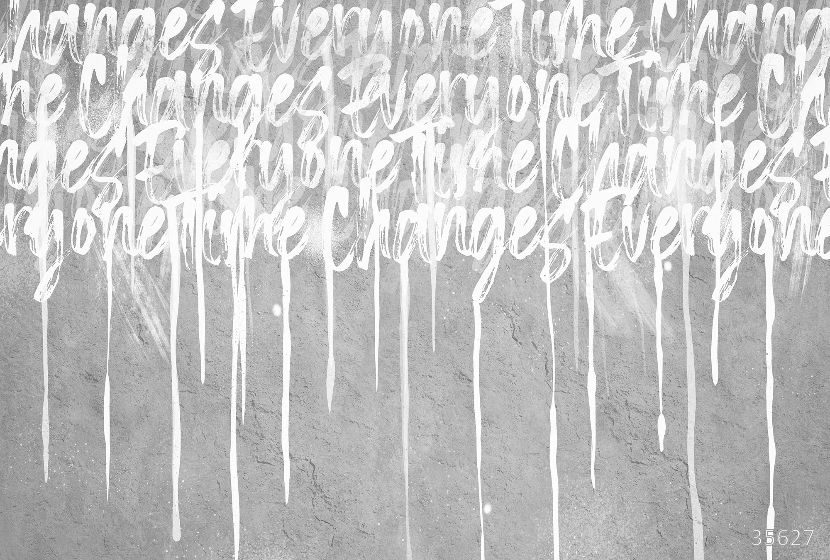 hanges Everyone Time Chang
me Changes Everyone Time Ch
nges Everyone Time Changes E
ryone Time Changes Everyone
35627